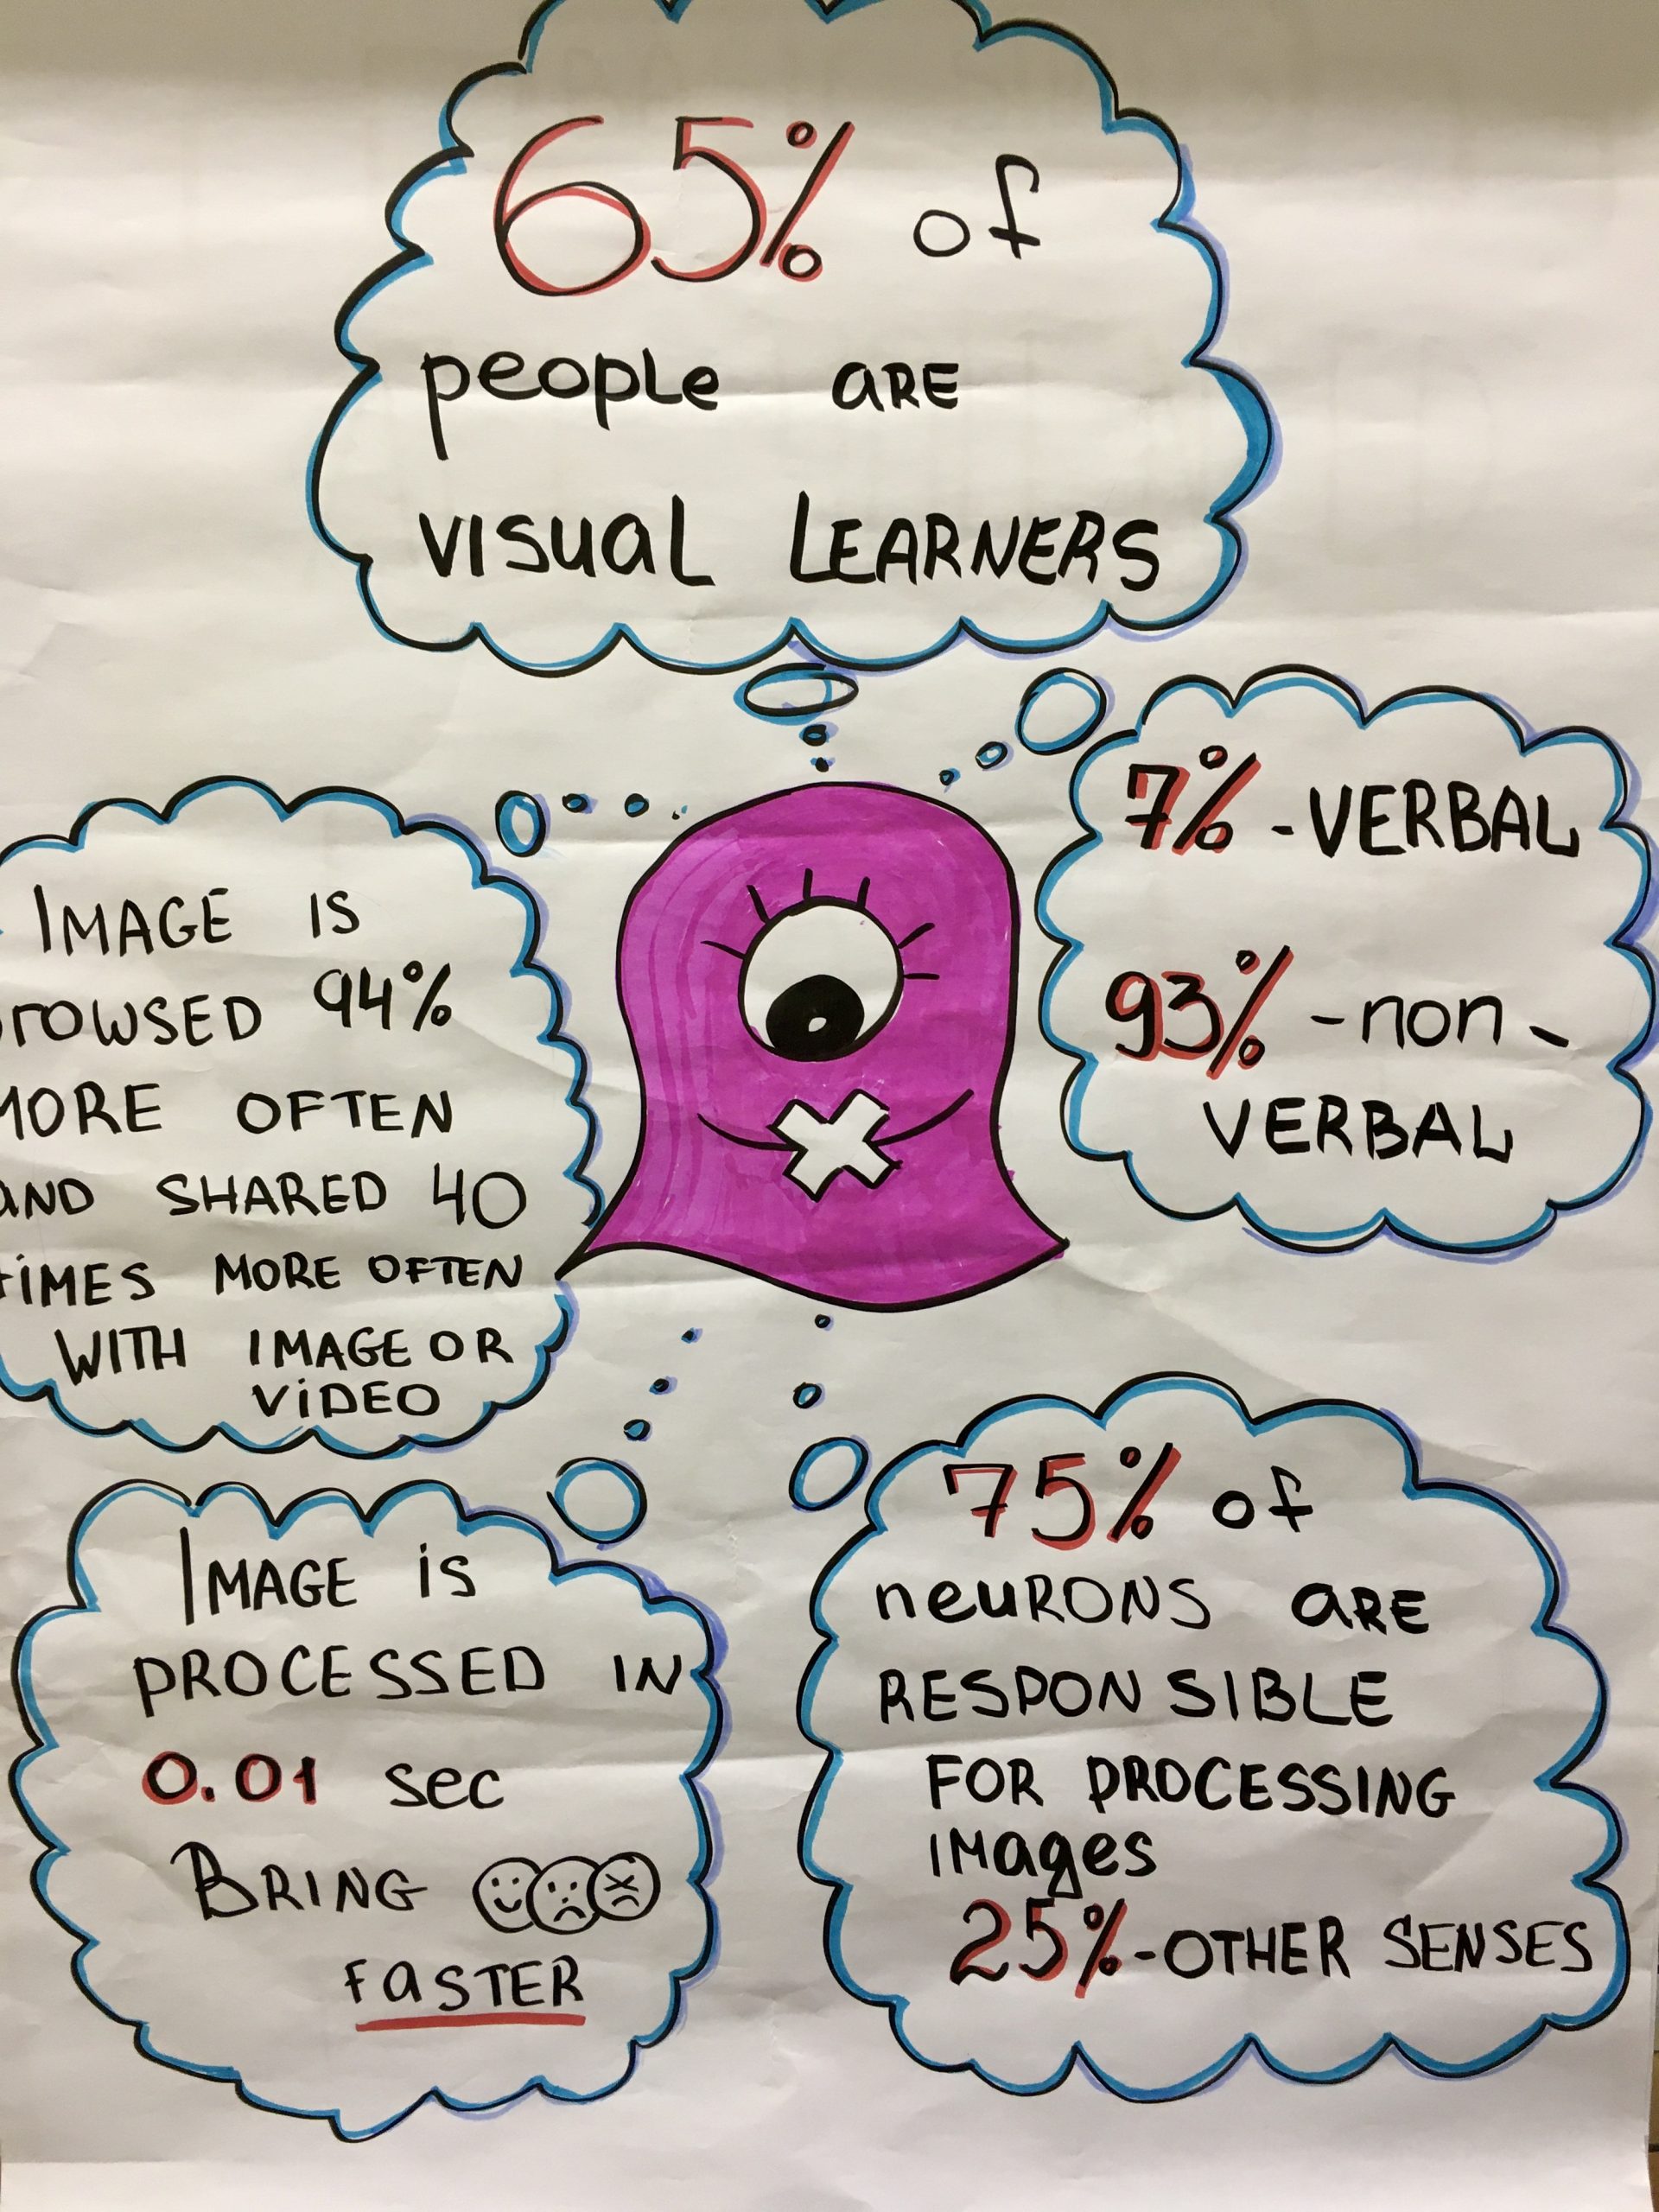 65% of
people are
visual Learners
7% - VERBAL
93% - non -
VERBAL
IMAGE IS
rowsed 94%
ORE OFTEN
AND SHARED 40
TIMES MORE OFTEN
WITH IMAGE OR
VIDEO
IMAGE is
PROCESSED IN
0.01 sec
BRING
FASTER
75% of
neurons are
RESPONSIBLE
FOR PROCESSING
images
25% - OTHER SENSES